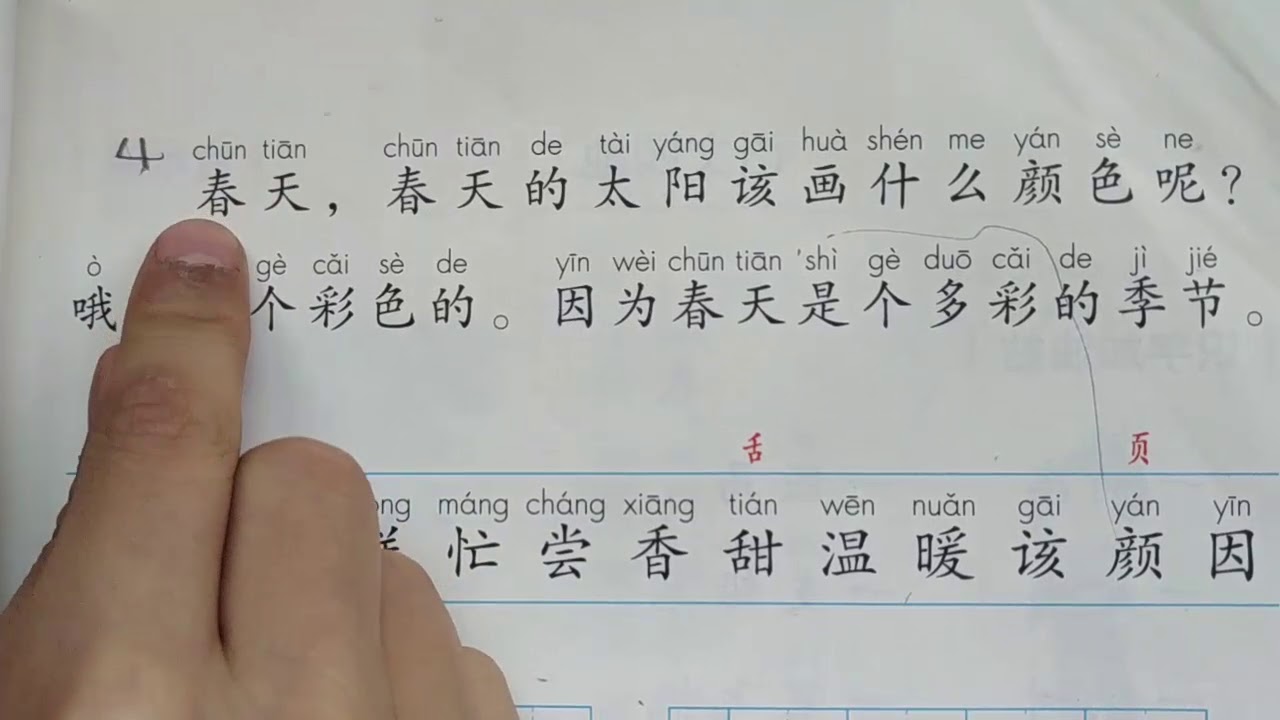 4 chūn tiān chūn tiān de tài yáng gāi huà shén me yán sè ne
春天，春天的太阳该画什么颜色呢？
ò gè cǎi sè de yīn wèi chūn tiān shì gè duō cǎi de jì jié
哦 个彩色的。因为春天是个多彩的季节。
舌 页
máng cháng xiāng tián wēn nuǎn gāi yán yīn
忙尝香甜温暖该颜因